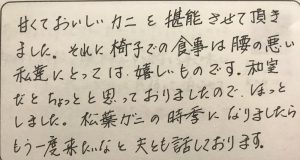 甘くておいしいカニを堪能させて頂き
ました。それに椅子での食事は腰の悪い
私達にとっては嬉しいものです。和室
だとちょっとと思っておりましたので、ほっと
しました。松葉ガニの時季になりましたら
もう一度来たいなと夫とも話しております。